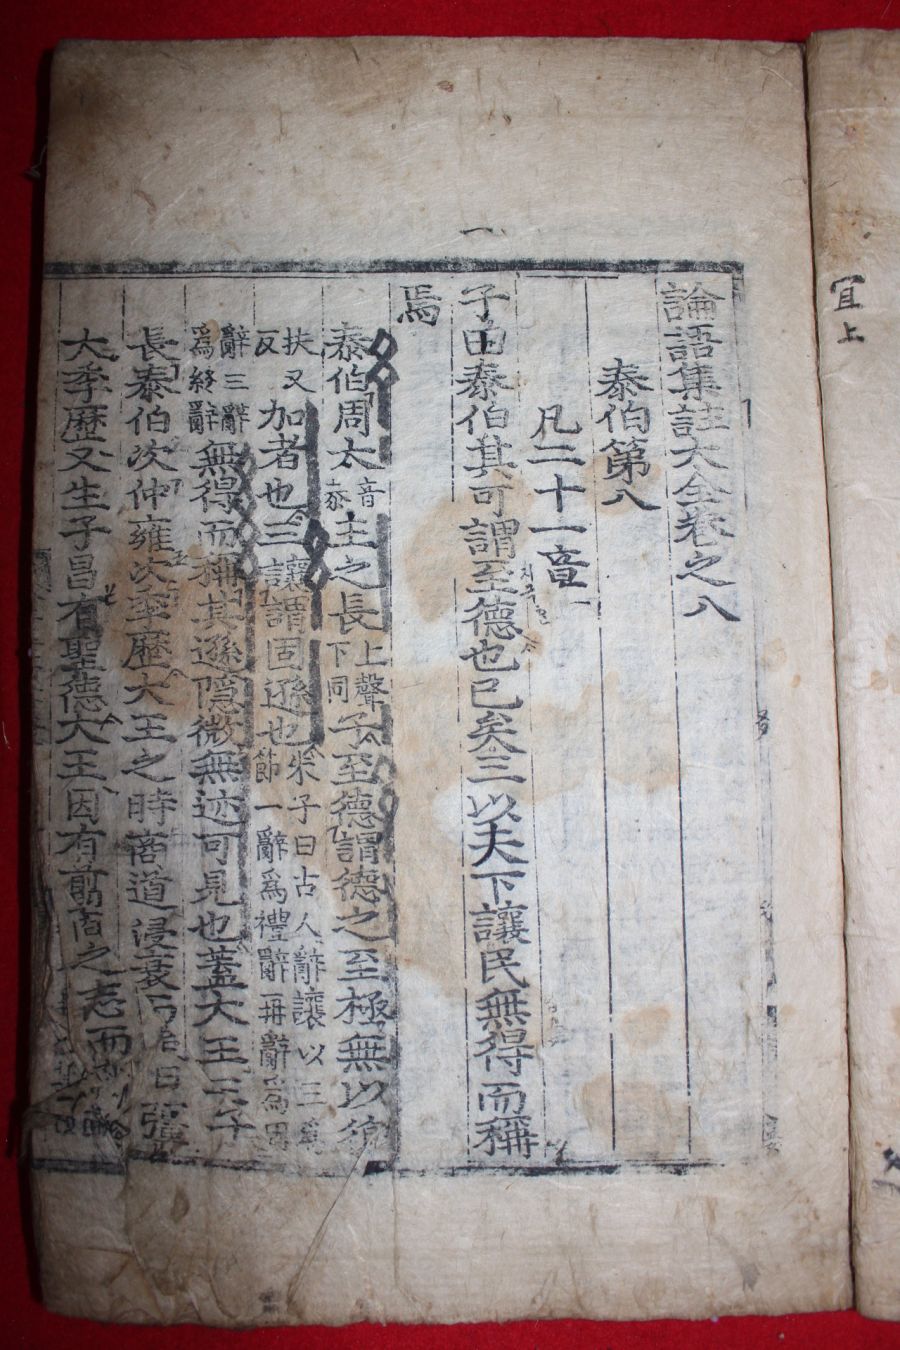 論語集註大全卷之八
泰伯第八
凡二十一章
子曰泰伯其可謂至德也已矣三以天下讓民無得而稱
焉
泰伯周太音泰王之長上聲下同子至德謂德之至極無以復
扶又反加者也三讓謂固遜也朱子曰古人辭讓以三爲節一辭爲禮辭再辭爲固
辭三辭爲終辭無得而稱其遜隱微無迹可見也蓋大王三子
長泰伯次仲雍次季歷大王之時商道浸衰而周日彊
大季歷又生子昌有聖德大王因有翦商之志而
宜上